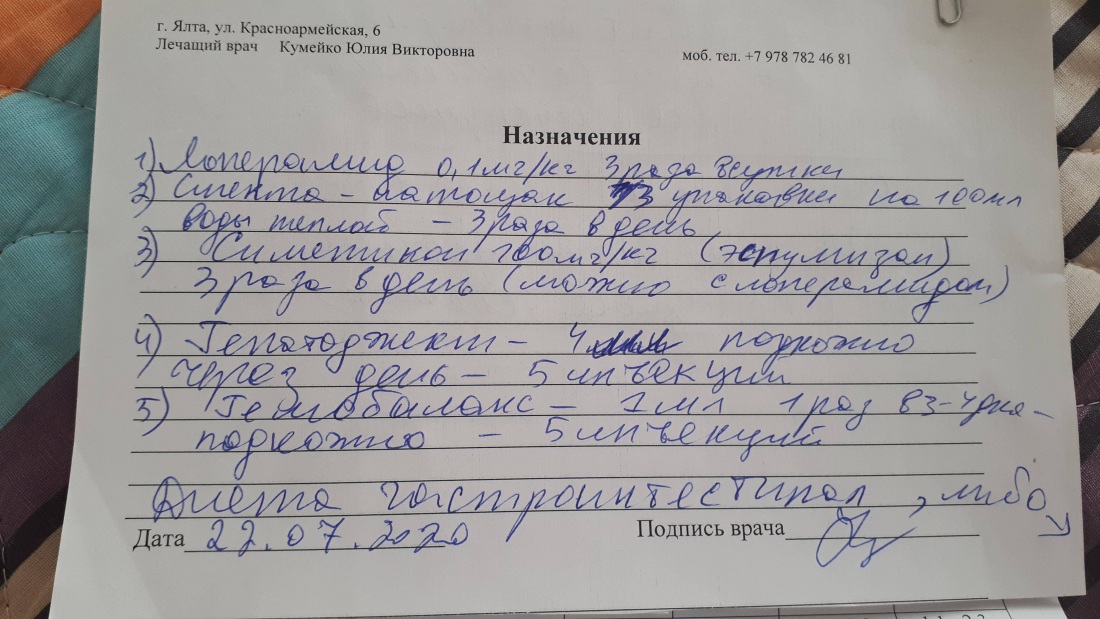 г. Ялта, ул. Красноармейская, 6
Лечащий врач Кумейко Юлия Викторовна
моб. тел. +7 978 782 46 81
Назначения
1) Лоперамид 0,1мг/кг 3 раза в сутки
2) Смекта - натощак 1/3 упаковки на 100мл
воды теплой - 3 раза в день
3) Симетикон 100мг/кг (эспумизан)
3 раза в день (можно с лоперамидом)
4) Гепатоджект - 4 подкожно
через день - 5 инъекций
5) Гемобаланс - 1мл 1 раз в 3-4 дня -
подкожно - 5 инъекций
Диета гастроинтестинал, либо
Дата 22.07.2020
Подпись врача